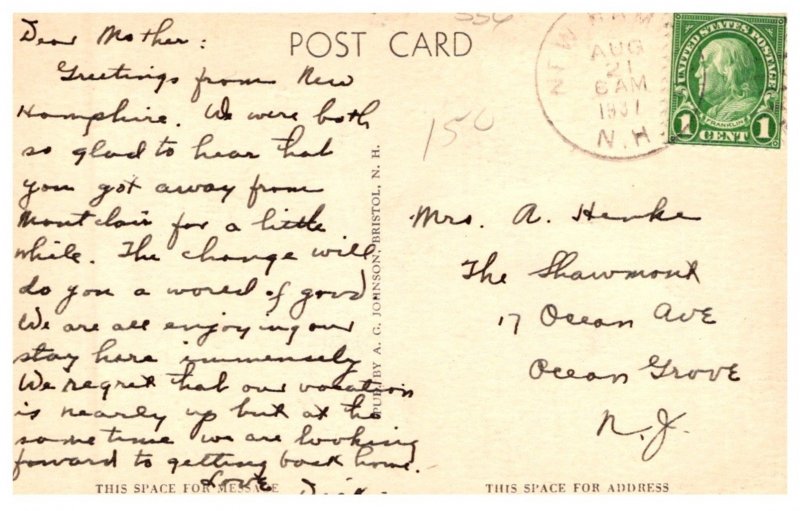 Dear Mother:
Greetings from New
Hampshire. We were both
so glad to hear that
you got away from
Montclair for a little
while. The change will
do you a world of good
We are all enjoying our
stay here immensely
We regret that our vacation
is nearly up but at the
same time we are looking
forward to getting back home.
Love
THIS SPACE FOR MESSAGE
POST CARD
PUB. BY A. G. JOHNSON, BRISTOL, N. H.
556
150
NEW HAM
AUG
21
6 AM
1937
N.H.
UNITED STATES POSTAGE
FRANKLIN
1 CENT 1
Mrs. A. Henke
The Shawmont
17 Ocean Ave
Ocean Grove
N.J.
THIS SPACE FOR ADDRESS